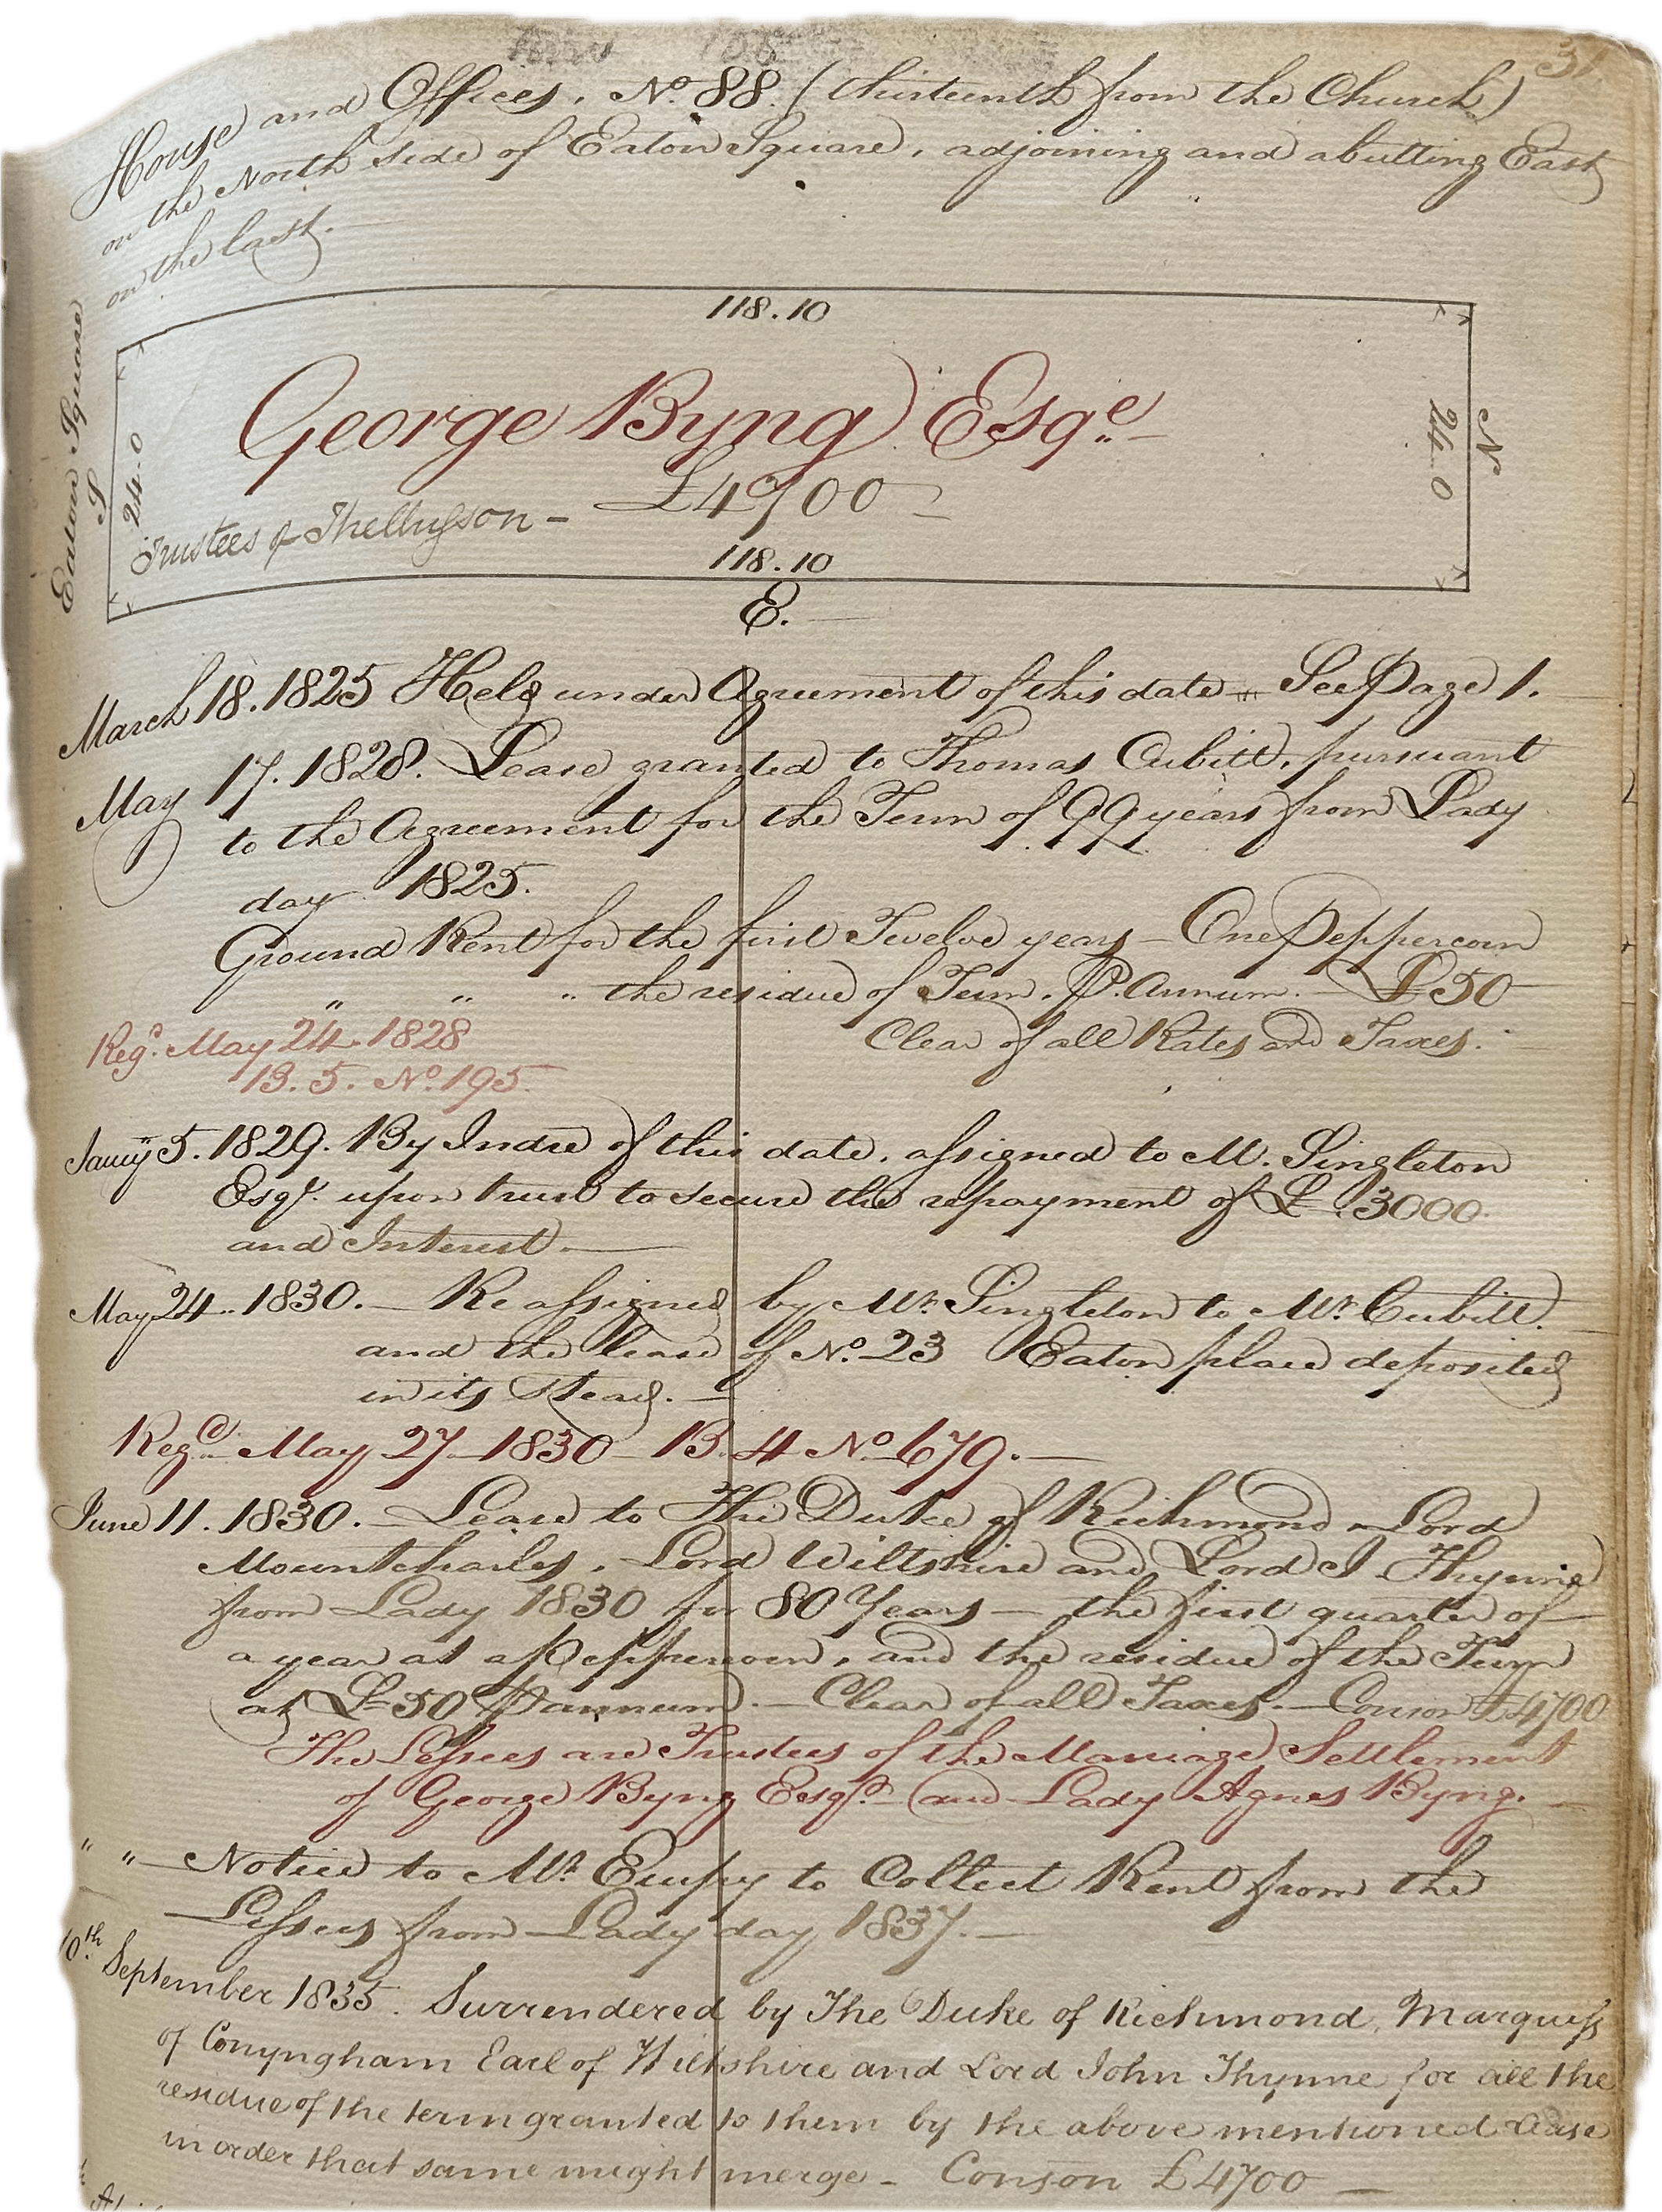 31
House and Offices, No. 88. (thirteenth from the Church)
on the North side of Eaton Square, adjoining and abutting East
on the last.—
118.10
Eaton Square
S
24.0
George Byng Esqre.—
£4700—
Trustees of Thellusson—
N
24.0
118.10
E.
March 18. 1825 Held under Agreement of this date — See Page 1.
May 17. 1828. Lease granted to Thomas Cubitt, pursuant
to the Agreement for the Term of 99 years from Lady
day 1825.
Ground Rent for the first Twelve years — One Peppercorn
" " " the residue of Term. P. Annum. £50
Clear of all Rates and Taxes.
Regd. May 24. 1828
B. 5. No. 195.
Jany 5. 1829. By Indre of this date, assigned to M. Singleton
Esqr. upon trust to secure the repayment of £ 3000.
and Interest.—
May 24.. 1830.— Re assigned by Mr. Singleton to Mr. Cubitt.
and the lease of No. 23 Eaton place deposited
in its Stead.—
Regd. May 27 1830 B. 4 No 679.—
June 11. 1830.— Lease to The Duke of Richmond, Lord
Mountcharles, Lord Wiltshire and Lord J. Thynne
from Lady 1830 for 80 Years — the first quarter of
a year at a Peppercorn, and the residue of the Term
at £50 P annum.— Clear of all Taxes.— Conson £4700
The Lessees are Trustees of the Marriage Settlement
of George Byng Esqr. and Lady Agnes Byng.—
" " — Notice to Mr. Empy to Collect Rent from the
Lessees from Lady day 1837.—
10.th September 1835. Surrendered by The Duke of Richmond, Marquess
of Conyngham Earl of Wiltshire and Lord John Thynne for all the
residue of the term granted to them by the above mentioned Lease
in order that same might merge — Conson £4700 —